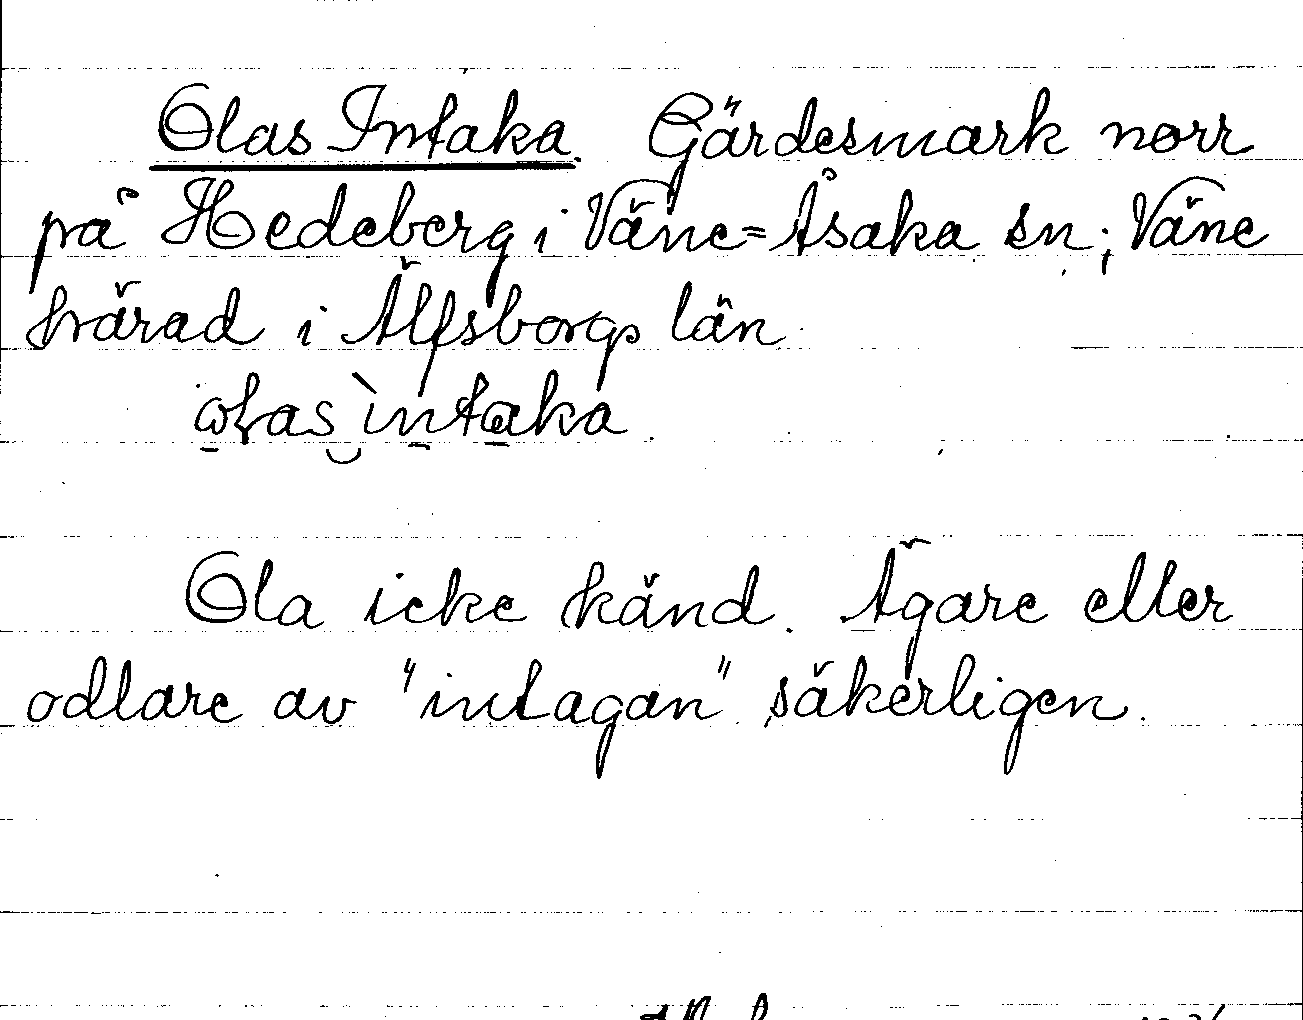 Olas Intaka. Gärdesmark norr
på Hedeberg i Väne=Åsaka sn; Väne
härad i Älfsborgs län.
intaka
Ola icke känd. Ägare eller
odlare av "intagan" säkerligen.